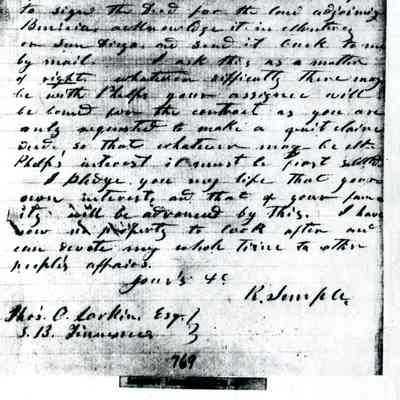 to sign the Deed for the land adjoining
Benicia, acknowledge it in
and send it back to me
by mail. I ask this as a matter
of right, whatever difficulty there may
be with Phelps your assignee will
be bound for the contract as you are
only requested to make a quit claim
deed, so that whatever may be
Phelps' interest it must be first settled
I pledge you my life that your
own interests, and that of your fam-
ily will be advanced by this. I have
now no property to look after and
can devote my whole time to other
people's affairs.
Your's &c
R. Semple
Thos. O. Larkin, Esq.
S. B.
769